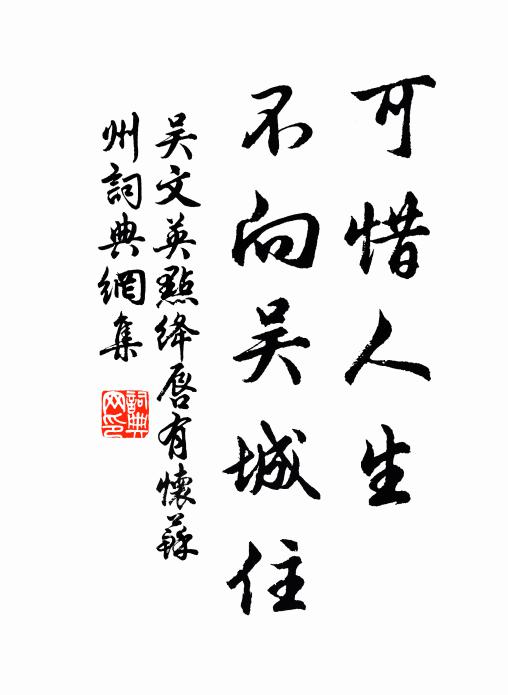 可惜人生
不向吴城住
吴文英點绛唇有懷蘇
州詞典網集
詞典
网印